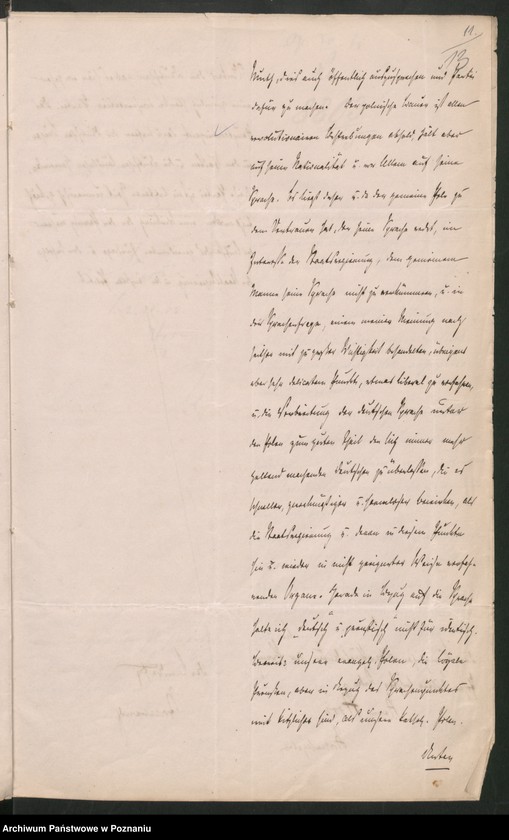 11.
13
Muth, dies auch öffentlich auszusprechen und Partei
dafür zu machen. Der polnische Bauer ist allen
revolutionairen Bestrebungen abhold hält aber
auf seine Nationalität u. vor Allem auf seine
Sprache. Es liegt daher u. da der gemeine Pole zu
dem Vertrauen hat, der seine Sprache redet, im
Interesse der Staatsregierung, dem gemeinen
Manne seine Sprache nicht zu verkümmern, u. in
der Sprachenfrage, einem meiner Meinung nach
seither mit zu großer Wichtigkeit behandelten, übrigens
aber sehr delicaten Punkte, etwas liberal zu verfahren,
u. die Verbreitung der deutschen Sprache unter
den Polen zum guten Theil den sich immer mehr
geltend machenden Deutschen zu überlassen, die es
schneller, u. harmloser bewirken, als
die Staatsregierung u. deren in diesem Punkte
hin u. wieder in nicht geeigneter Weise verfah-
renden Organe. Gerade in Bezug auf die Sprache
halte ich „deutsch u. preußisch" nicht für identisch.
Beweis: unsere evangel. Polen, die loyale
Preußen, aber in Bezug des Sprachenpunktes
weit kitzlicher sind, als unsere kathol. Polen.
Archiwum Państwowe w Poznaniu